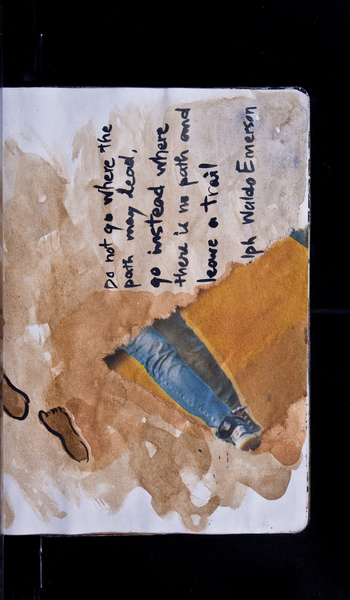 Do not go where the
path may lead,
go instead where
there is no path and
leave a trail
lph Waldo Emerson